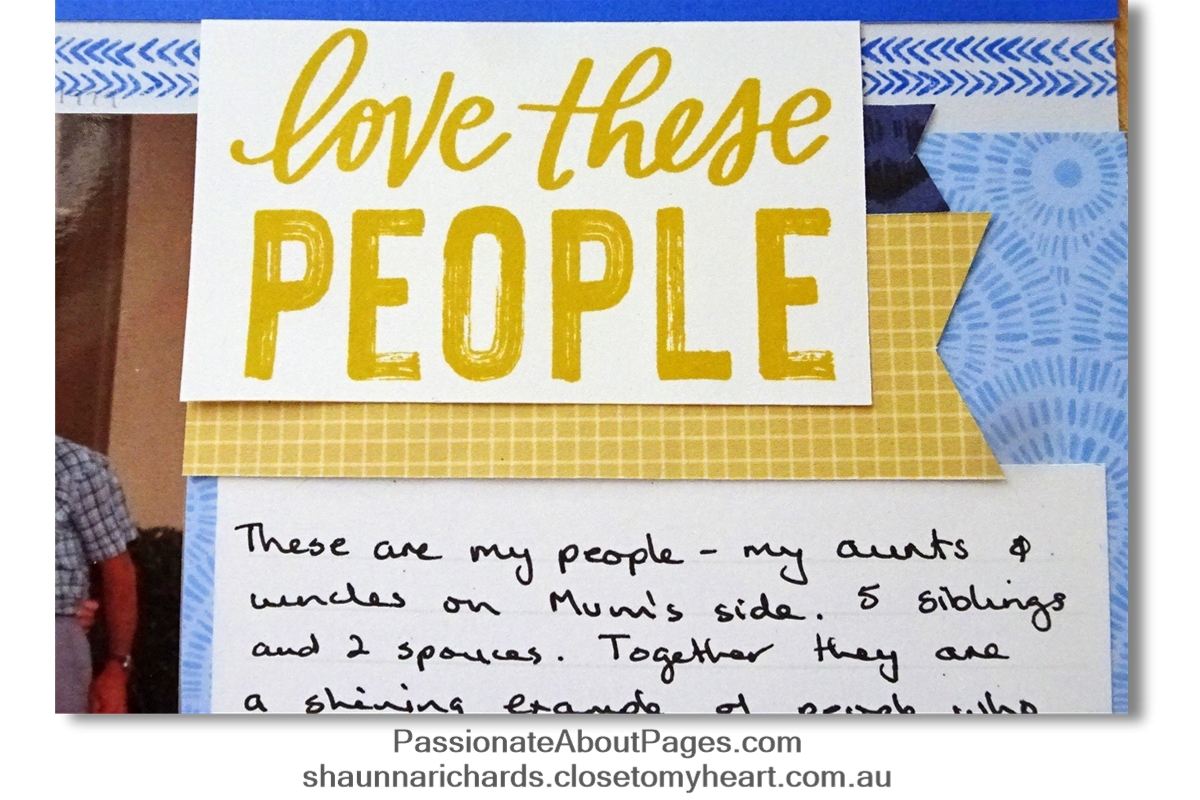 love these
PEOPLE
These are my people - my aunts &
uncles on Mum's side. 5 siblings
and 2 spouses. Together they are
a shining example of people who
PassionateAboutPages.com
shaunnarichards.closetomyheart.com.au